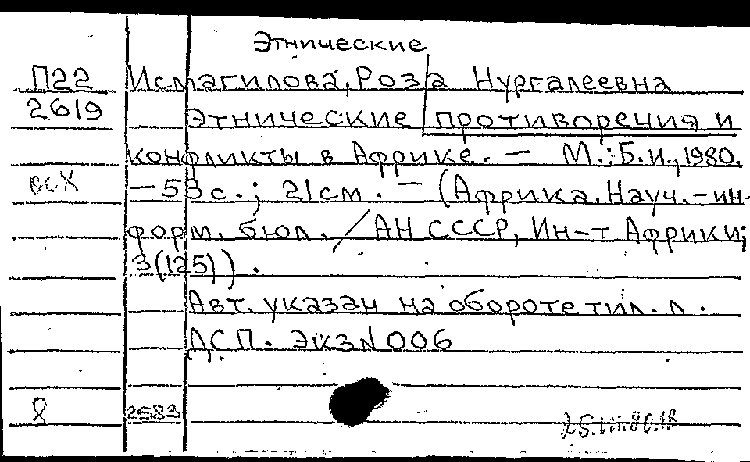 Этнические
П22 Исмагилова, Роза Нургалеевна
2619 Этнические противоречия и
конфликты в Африке. — М.: Б.и., 1980.
— 53 с.; 21 см. — (Африка. Науч.-ин-
форм. бюл. / АН СССР, Ин-т Африки;
3(125)).
Авт. указан на обороте тит. л.
ДСП. Экз N 006
2583